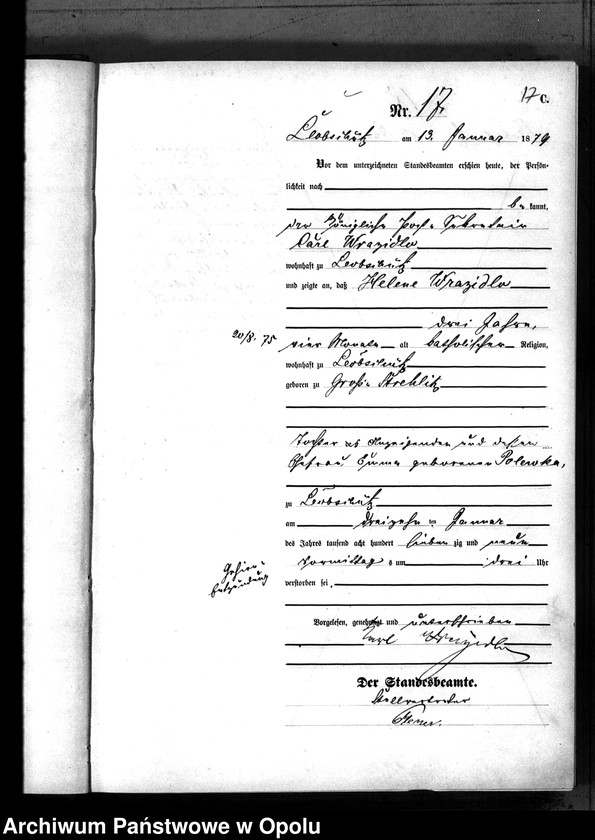 17 C.
Nr. 17.
Leobschütz am 13. Januar 1879
Vor dem unterzeichneten Standesbeamten erschien heute, der Persön-
lichkeit nach
be kannt,
der Königliche Post-Sekretair
Carl Wrazidlo
wohnhaft zu Leobschütz
und zeigte an, daß Helene Wrazidlo
drei Jahre,
20/8. 75
vier Monate alt katholischer Religion,
wohnhaft zu Leobschütz
geboren zu Groß-Strehlitz
Tochter des Anzeigenden und dessen
Ehefrau Emma geborenen Polewka,
zu Leobschütz
am dreizehn ten Januar
des Jahres tausend acht hundert sieben zig und neun
Vormittag s um drei Uhr
verstorben sei.
Gehirn-
Entzündung
Vorgelesen, genehmigt und unterschrieben
Carl Wrazidlo
Der Standesbeamte.
Stellvertreter
Archiwum Państwowe w Opolu